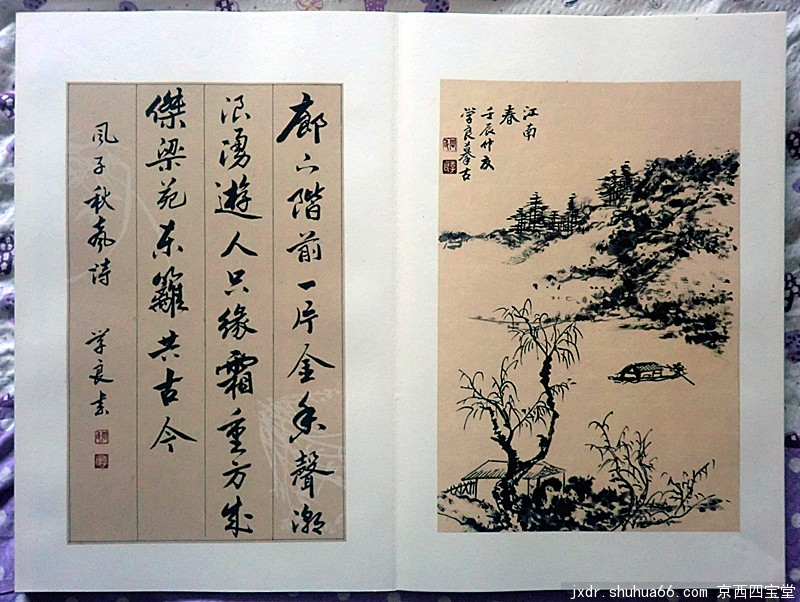 江南
春
壬辰仲夏
学良摹古
廊下階前一片金香聲潮
浪湧遊人只緣霜重方成
傑梁苑東籬共古今
風子秋詩 学良书
jxdr.shuhua66.com 京西四宝堂